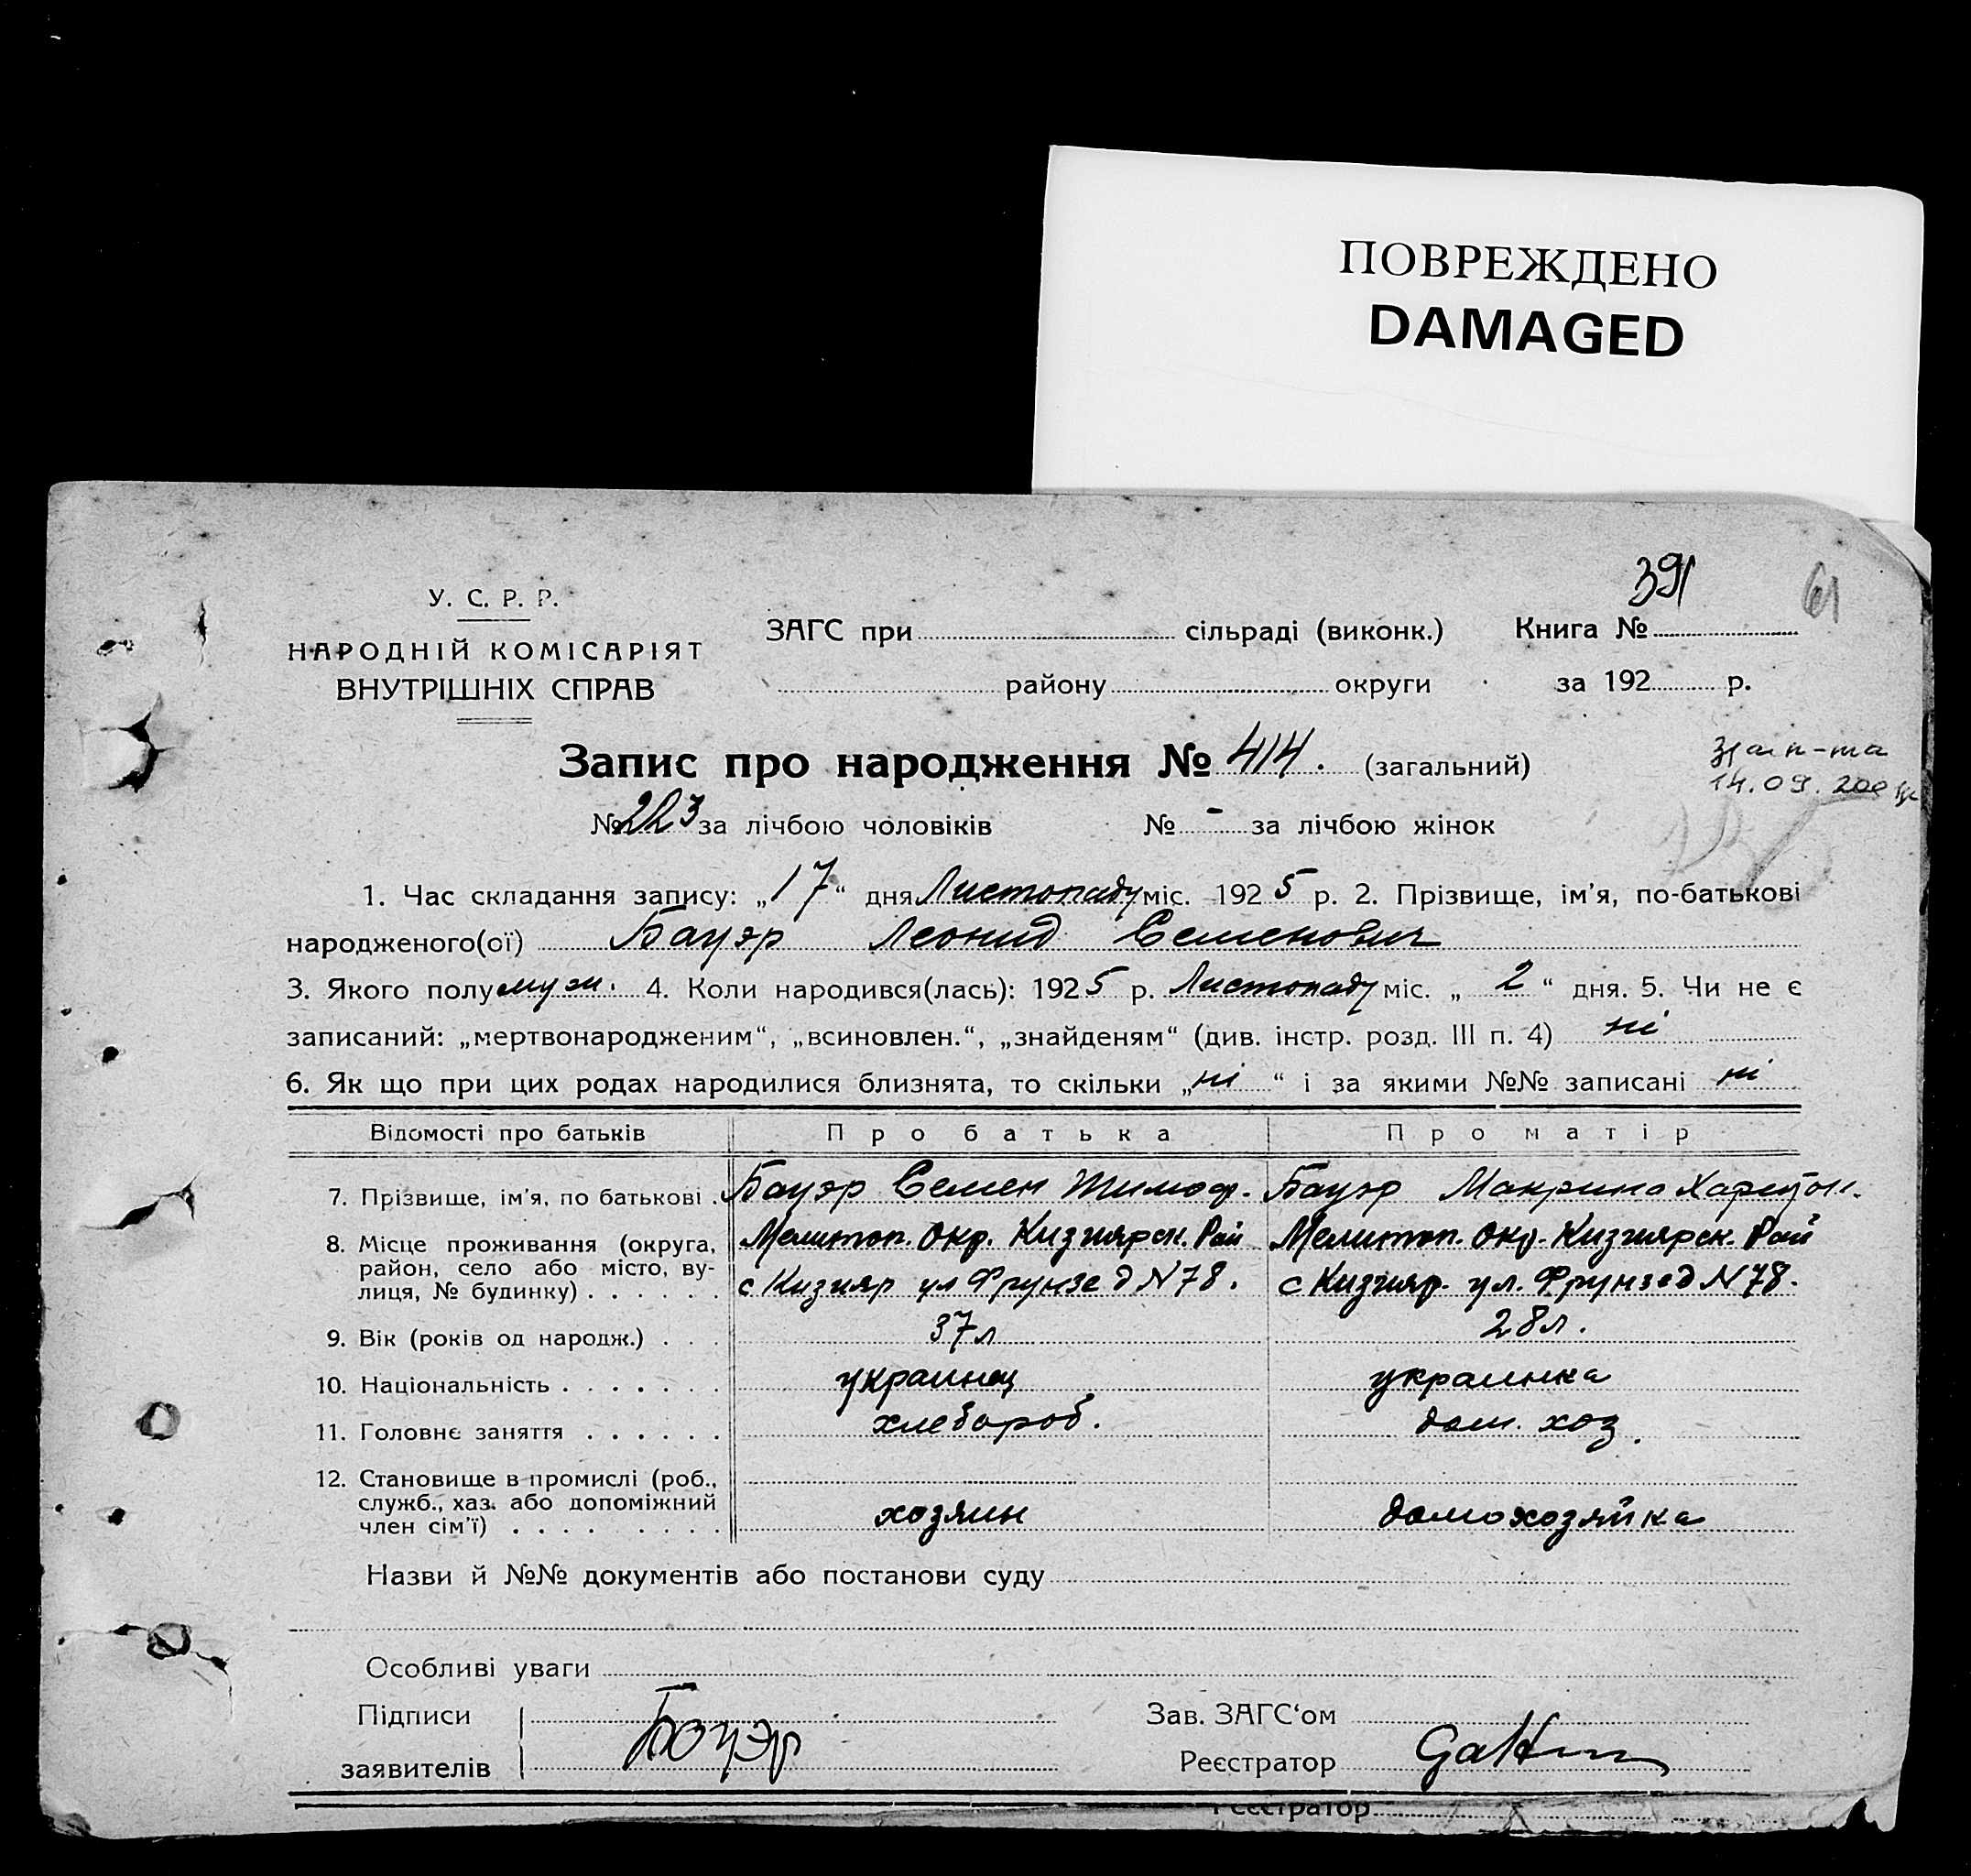 ПОВРЕЖДЕНО
DAMAGED
391
61
У. С. Р. Р.
НАРОДНІЙ КОМІСАРІЯТ
ВНУТРІШНІХ СПРАВ
ЗАГС при сільраді (виконк.) Книга №
району округи за 192 р.
Запис про народження № 414. (загальний)
14.09.200
№ 223 за лічбою чоловіків № - за лічбою жінок
1. Час складання запису: „17“ дня Листопаду міс. 1925 р. 2. Прізвище, ім'я, по-батькові
народженого(ої) Бауэр Леонид Семенович
3. Якого полу муж. 4. Коли народився(лась): 1925 р. Листопаду міс. „2“ дня. 5. Чи не є
записаний: „мертвонародженим“, „всиновлен.“, „знайденям“ (див. інстр. розд. III п. 4) ні
6. Як що при цих родах народилися близнята, то скільки „ні“ і за якими №№ записані ні
Відомості про батьків Про батька Про матір
7. Прізвище, ім'я, по батькові . Бауэр Семен Тимоф. Бауэр Макрина Харитон.
8. Місце проживання (округа, Мелитоп. Окр. Кизиярск. Рай Мелитоп. Окр. Кизиярск. Рай
район, село або місто, ву-
лиця, № будинку) . . . . . . с Кизияр ул Фрунзе д N 78. с Кизияр. ул. Фрунзе д N 78.
9. Вік (років од народж.) . . . 37 л 28 л.
10. Національність . . . . . . . украинец украинка
11. Головне заняття . . . . . . хлебороб. дом. хоз.
12. Становище в промислі (роб.,
служб., хаз. або допоміжний
член сім'ї) . . . . . . . . . хозяин домохозяйка
Назви й №№ документів або постанови суду
Особливі уваги
Підписи Зав. ЗАГС'ом
заявителів Бауэр Реєстратор
Реєстратор